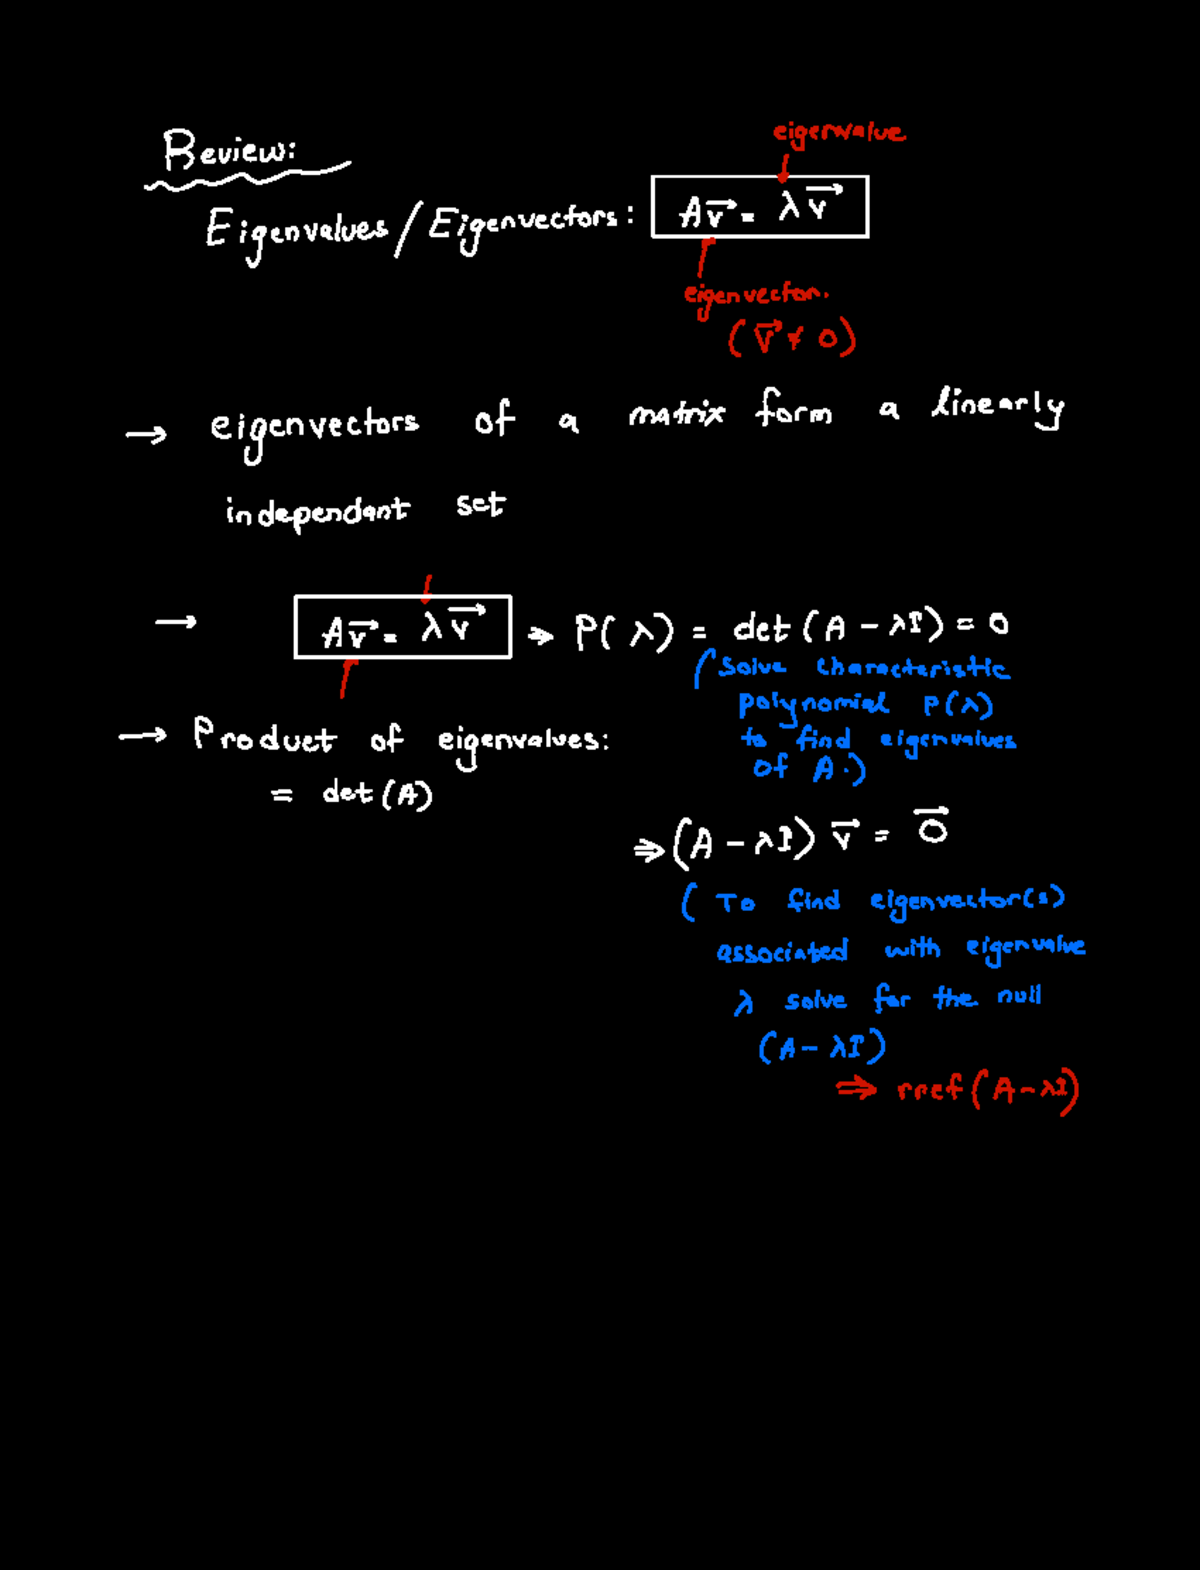 Review:
eigenvalue
Eigenvalues / Eigenvectors: Av⃗ = λv⃗
eigenvector.
(v⃗ ≠ 0)
→ eigenvectors of a matrix form a linearly
independant set
→ Av⃗ = λv⃗ ⇒ P(λ) = det(A - λI) = 0
(Solve characteristic
polynomial P(λ)
to find eigenvalues
of A.)
→ Product of eigenvalues:
= det(A)
⇒ (A - λI) v⃗ = 0⃗
(To find eigenvector(s)
associated with eigenvalue
λ solve for the null
(A - λI)
⇒ rref(A - λI)